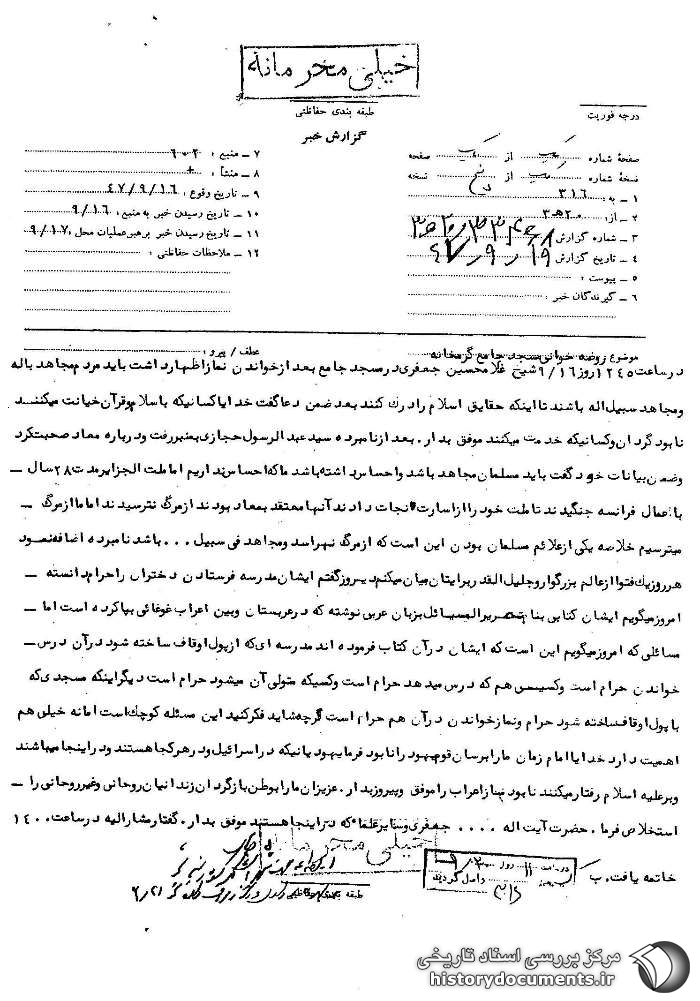 خیلی محرمانه
طبقه بندی حفاظتی
درجه فوریت
گزارش خبر
صفحهٔ شماره یک از یک صفحه
نسخهٔ شماره یک از پنج نسخه
۱ ـ به : ۳۱۶
۲ ـ از : ۲۰ ه‍ ۳
۳ ـ شماره گزارش
۴ ـ تاریخ گزارش ۴۷/۹/۱۹
۵ ـ پیوست :
۶ ـ گیرندگان خبر :
۷ ـ منبع : ۶۰۲
۸ ـ منشأ :
۹ ـ تاریخ وقوع : ۴۷/۹/۱۶
۱۰ ـ تاریخ رسیدن خبر به منبع : ۹/۱۶
۱۱ ـ تاریخ رسیدن خبر برهبر عملیات محل : ۹/۱۷
۱۲ ـ ملاحظات حفاظتی :
موضوع : روضه خوانی مسجد جامع گرمخانه
عطف / پیرو :
در ساعت ۱۲۴۵ روز ۹/۱۶ شیخ غلامحسین جعفری در مسجد جامع بعد از خواندن نماز اظهار داشت باید مردم مجاهد باله
و مجاهد سبیل اله باشند تا اینکه حقایق اسلام را درک کنند بعد ضمن دعا گفت خدایا کسانیکه باسلام و قرآن خیانت میکنند
نابود گردان و کسانیکه خدمت میکنند موفق بدار . بعد از نامبرده سید عبدالرسول حجازی بمنبر رفت و درباره معاد صحبت کرد
و ضمن بیانات خود گفت باید مسلمان مجاهد باشد و احساس داشته باشد ما که احساس نداریم اما ملت الجزایر مدت ۲۸ سال ـ
با عمال فرانسه جنگیدند تا ملت خود را از اسارت نجات دادند آنها معتقد بمعاد بودند از مرگ نترسیدند اما ما از مرگ ـ
میترسیم خلاصه یکی از علائم مسلمان بودن این است که از مرگ نهراسد و مجاهد فی سبیل ... باشد نامبرده اضافه نمود
هر روز یک فتوا از عالم بزرگوار و جلیل القدر برایتان بیان میکنم دیروز گفتم ایشان مدرسه فرستادن دختران را حرام دانسته ـ
امروز میگویم ایشان کتابی بنام تحریرالوسیائل بزبان عربی نوشته که در عربستان و بین اعراب غوغائی بپا کرده است اما ـ
مسائلی که امروز میگویم این است که ایشان در آن کتاب فرموده اند مدرسه ای که از پول اوقاف ساخته شود در آن درس ـ
خواندن حرام است و کسیس هم که درس میدهد حرام است و کسیکه متولی آن میشود حرام است دیگر اینکه مسجدی که
با پول اوقاف ساخته شود حرام و نماز خواندن در آن هم حرام است گرچه شاید فکر کنید این مسئله کوچک است اما نه خیلی هم
اهمیت دارد خدایا امام زمان ما را برسان قوم یهود را نابود فرما یهودیانیکه در اسرائیل و در هر کجا هستند و در اینجا میباشند
و بر علیه اسلام رفتار میکنند نابود بساز اعراب را موفق و پیروز بدار . عزیزان ما را بوطن بازگردان زندانیان روحانی و غیر روحانی را ـ
استخلاص فرما . حضرت آیت اله .... جعفری و سایر علما که در اینجا هستند موفق بدار . گفتار مشارالیه در ساعت ۱۴۰۰
خاتمه یافت. ب
خیلی محرمانه
طبقه بندی حفاظتی
در ساعت ۱۱ روز
واصل گردید
مرکز بررسی اسناد تاریخی
historydocuments.ir